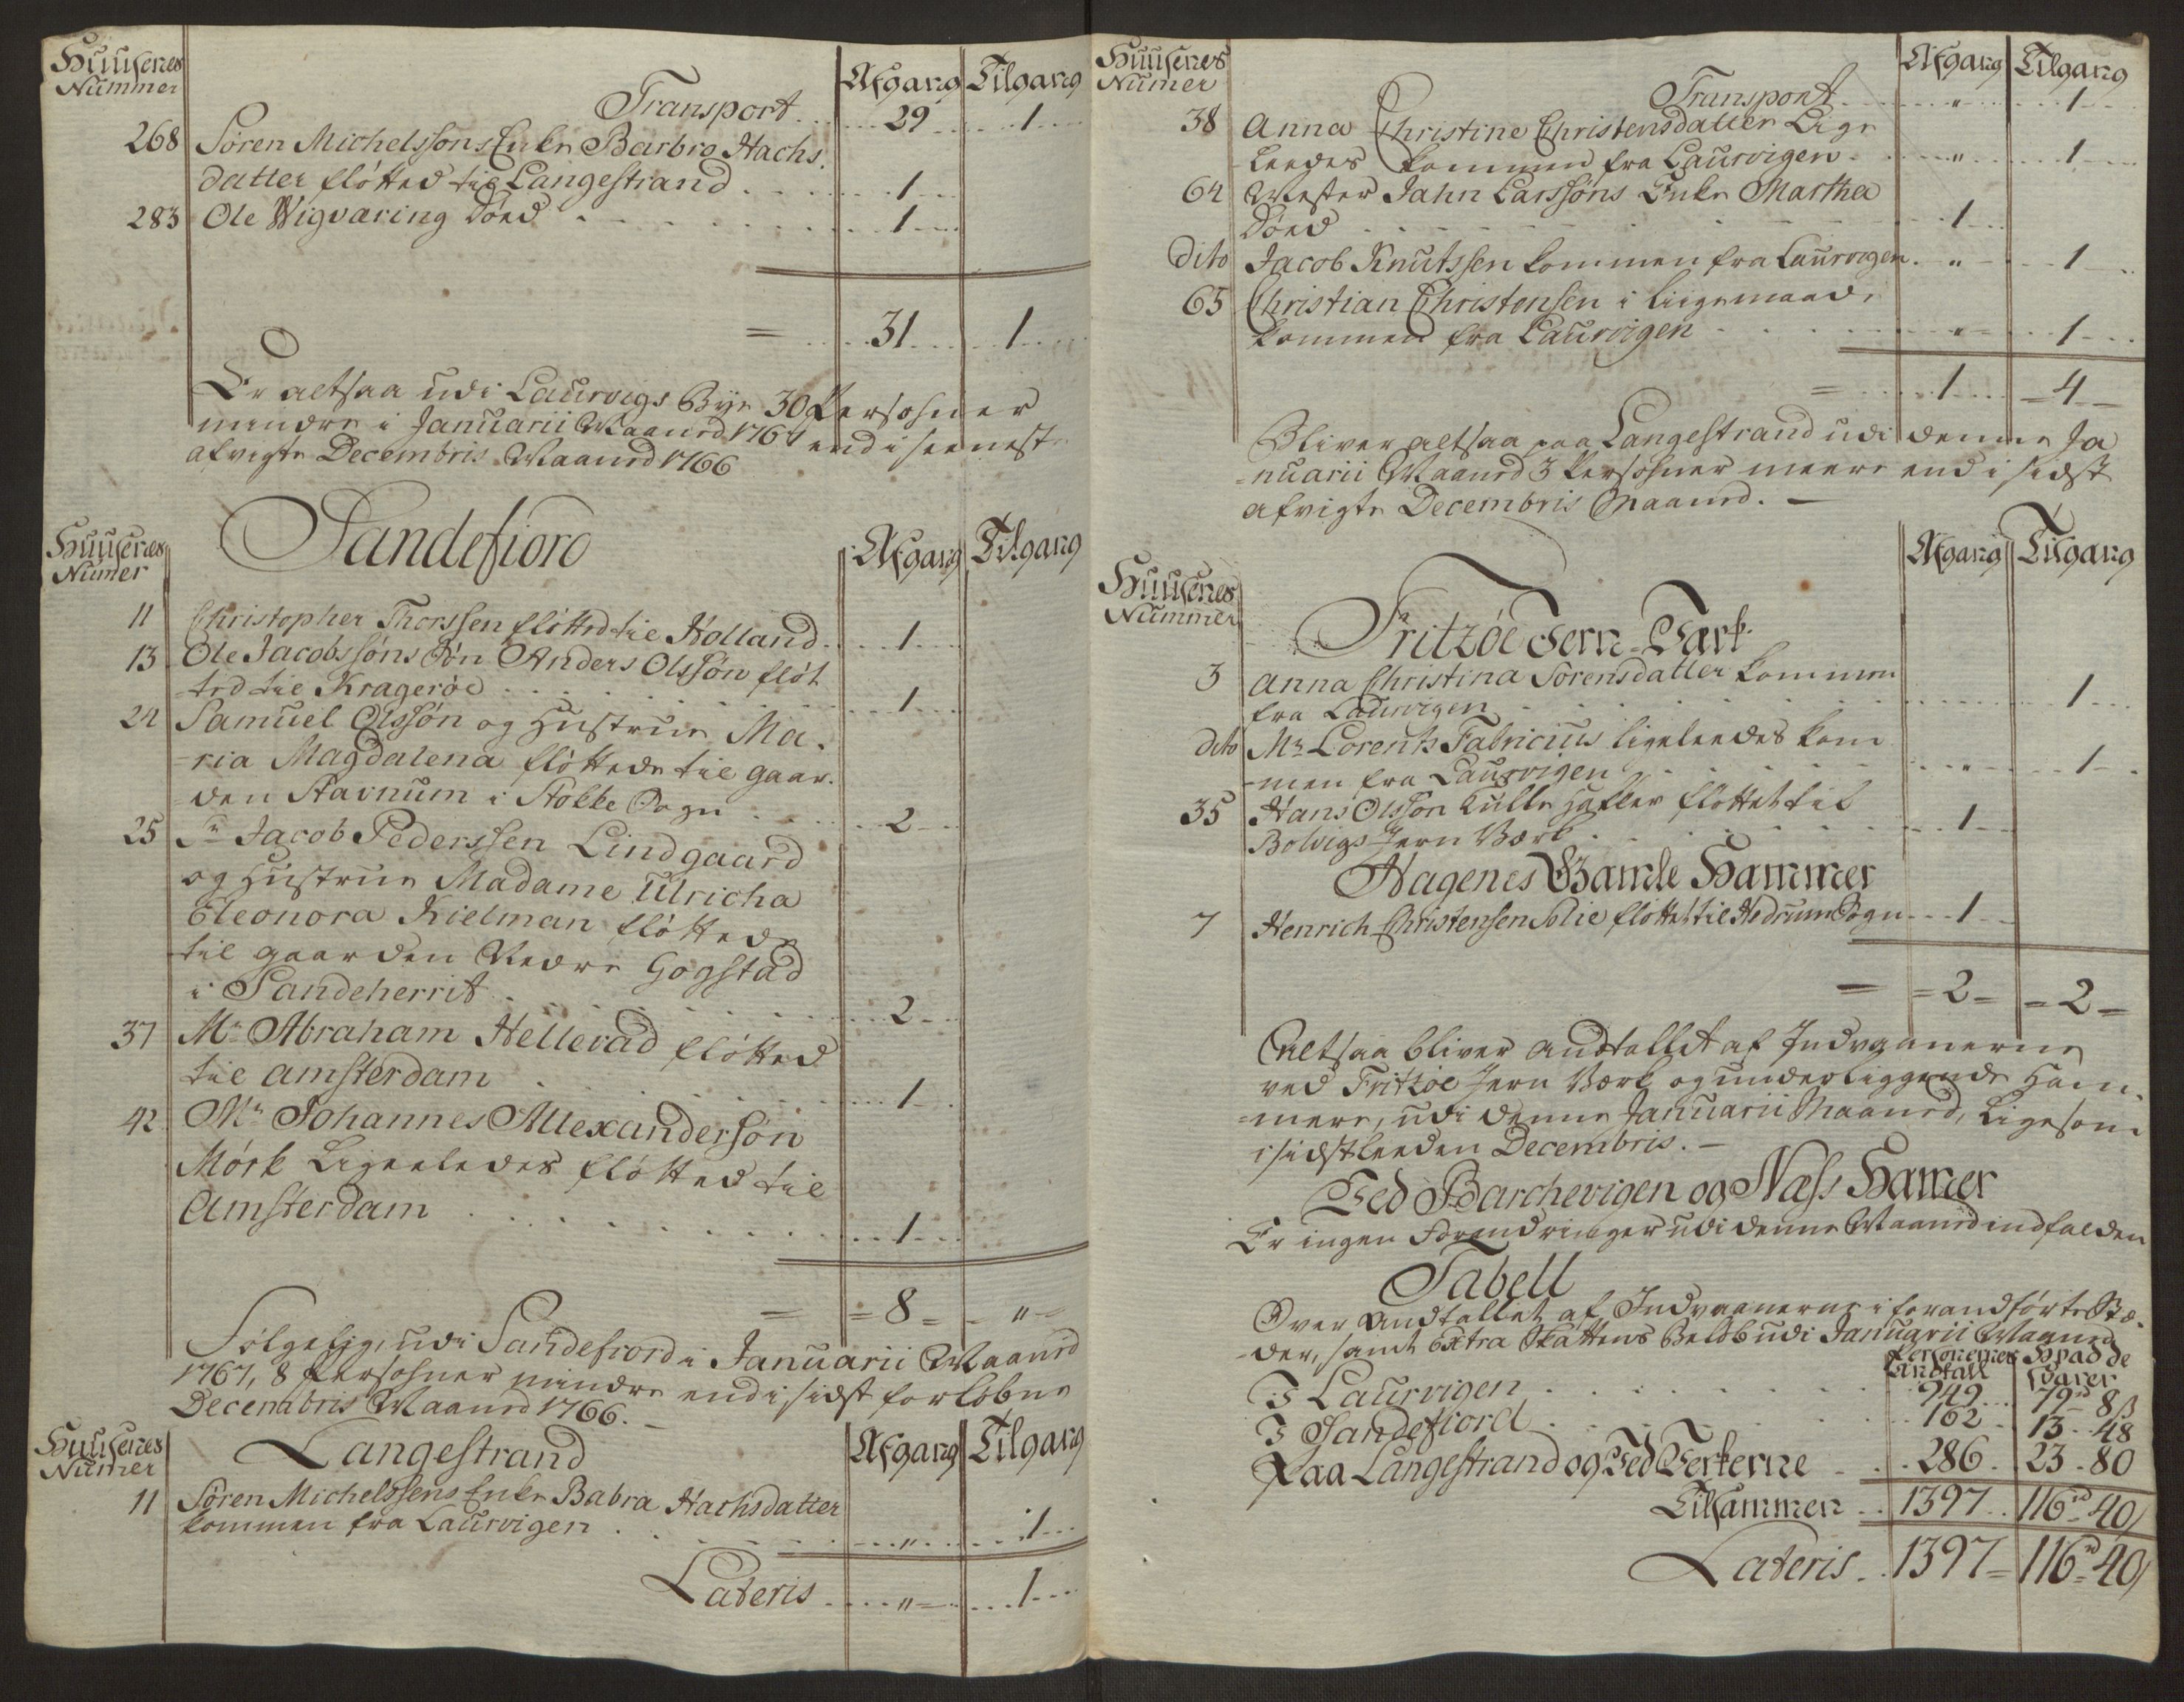 Huusenes Nummer
Afgang Tilgang
Transport 29 1
268 Sören Michelssöns Enke Barbro Hachs
datter flötted til Langestrand 1
283 Ole Wigværing död 1
= 31 1
Er altsaa udi Laurvigs Bye 30 Persohner
mindre i Januarii Maaned 1767 end i seeneste
afvigte Decembris Maaned 1766
Huusenes Numer
Sandefiord
Afgang Tilgang
11 Christopher Thorssen flötted til Holland 1
13 Ole Jacobssöns Sön Anders Olssön flöt
ted til Kragerøe 1
24 Samuel Olssön og Hustrue Ma-
ria Magdalena flöttede til gaar-
den Stavnum i Stokke Sogn 2
25 Sr Jacob Pederssen Lindgaard
og Hustrue Madame Ulricha
Eleonora Kielman flöttede
til gaarden Nedre Gogstad
i Sandeherrit 2
37 Mr Abraham Hellevad flötted
til Amsterdam 1
42 Mr Johannes Allexandersön
Mörk Ligeeledes flötted til
Amsterdam 1
= = 8 = - " -
Fölgelig, udi Sandefiord i Januarii Maaned
1767, 8 Persohner mindre end i sidst forlöbne
Decembris Maaned 1766. -
Huusenes Numer
Langestrand
Afgang Tilgang
11 Sören Michelssens Enke Babra Hachsdatter
kommen fra Laurvigen " 1
Lateris " 1
Huusenes Numer
Afgang Tilgang
Transport " 1
38 Anna Christine Christensdatter Lige
leedes kommen fra Laurvigen " 1
64 Mester Jahn Larssöns Enke Martha
död 1
dito Jacob Knutssen kommen fra Laurvigen " 1
65 Christian Christensen i liigemaade
kommen fra Laurvigen " 1
= 1 4
Bliver altsaa paa Langestrand udi denne Ja
nuarii Maaned 3 Persohner meere end i sidst
afvigte Decembris Maaned. -
Afgang Tilgang
Huusenes Nummer
Fritzöe Jern-Værk
3 Anna Christina Sörensdatter kommen
fra Laurvigen 1
dito Mr Lorentz Fabricius ligeleedes kom
men fra Laurvigen " 1
35 Hans Olssön Kulle flöttet til
Bolvigs Jern Værk 1
Hagenes Gamle Hammer
7 Henrich Christensen Solie flöttet til Hedrum Sogn 1
= = 2 = = 2 =
Altsaa bliver Andtallet af Indvaanerne
ved Fritzöe Jern Værk og underliggende Ham-
mere, udi denne Januarii Maaned, Ligesom
i sidstleeden Decembris. -
Ved Barchevigen og Næss Hamer
Er ingen Forandringer udi denne Maaned indfalden
Tabell
Over Andtallet af Indvaanerne i forandförte Stæ-
der, samt Extra Skattens Belöb udi Januarii Maaned
Personernes Andtall Hvad de svarer
I Laurvigen 949 79rd 8ß
I Sandefiord 162 13 48
Paa Langestrand og Ved Verkerne 286 23 80
Tilsammen 1397 116rd 40
Lateris 1397 116rd 40